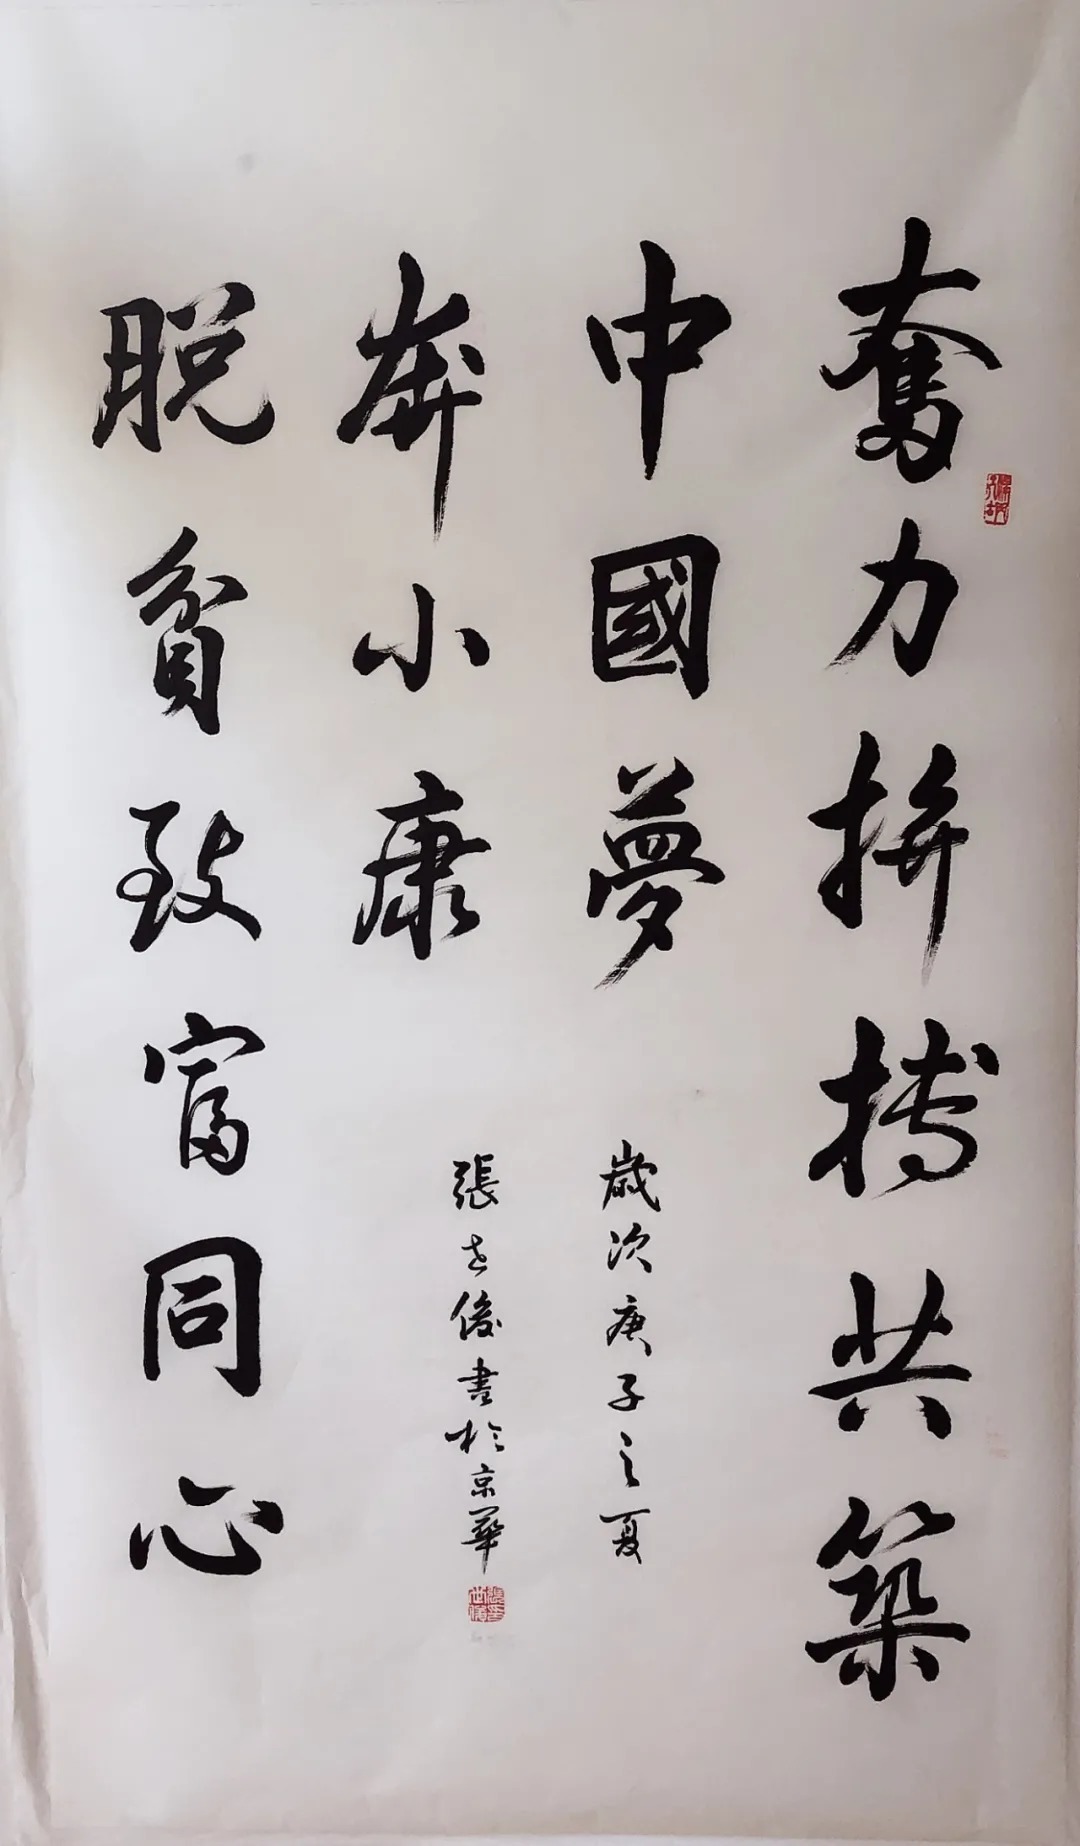 奮力拼搏共築
中國夢
脱貧致富同心
奔小康
歲次庚子之夏
張世俊書於京華